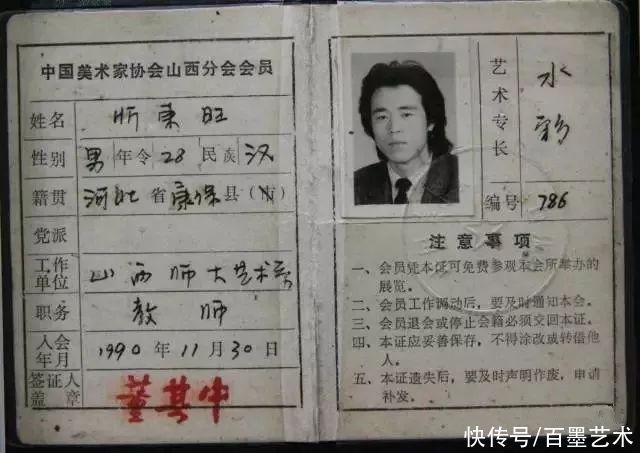 中国美术家协会山西分会会员
姓名 忻東旺
性别 男 年令 28 民族 汉
籍贯 河北 省 康保 县(市)
党派
工作
单位 山西师大艺术系
职务 教师
入会
年月 1990 年 11 月 30 日
签证人
盖章 董其中
艺术专长 水彩
编号 786
注意事项
一、会员凭本证可免费参观本会所举办的
展览。
二、会员工作调动后，要及时通知本会。
三、会员退会或停止会籍必须交回本证。
四、本证应妥善保存，不得涂改或转借他
人。
五、本证遗失后，要及时声明作废，申请
补发。
快传号/百墨艺术